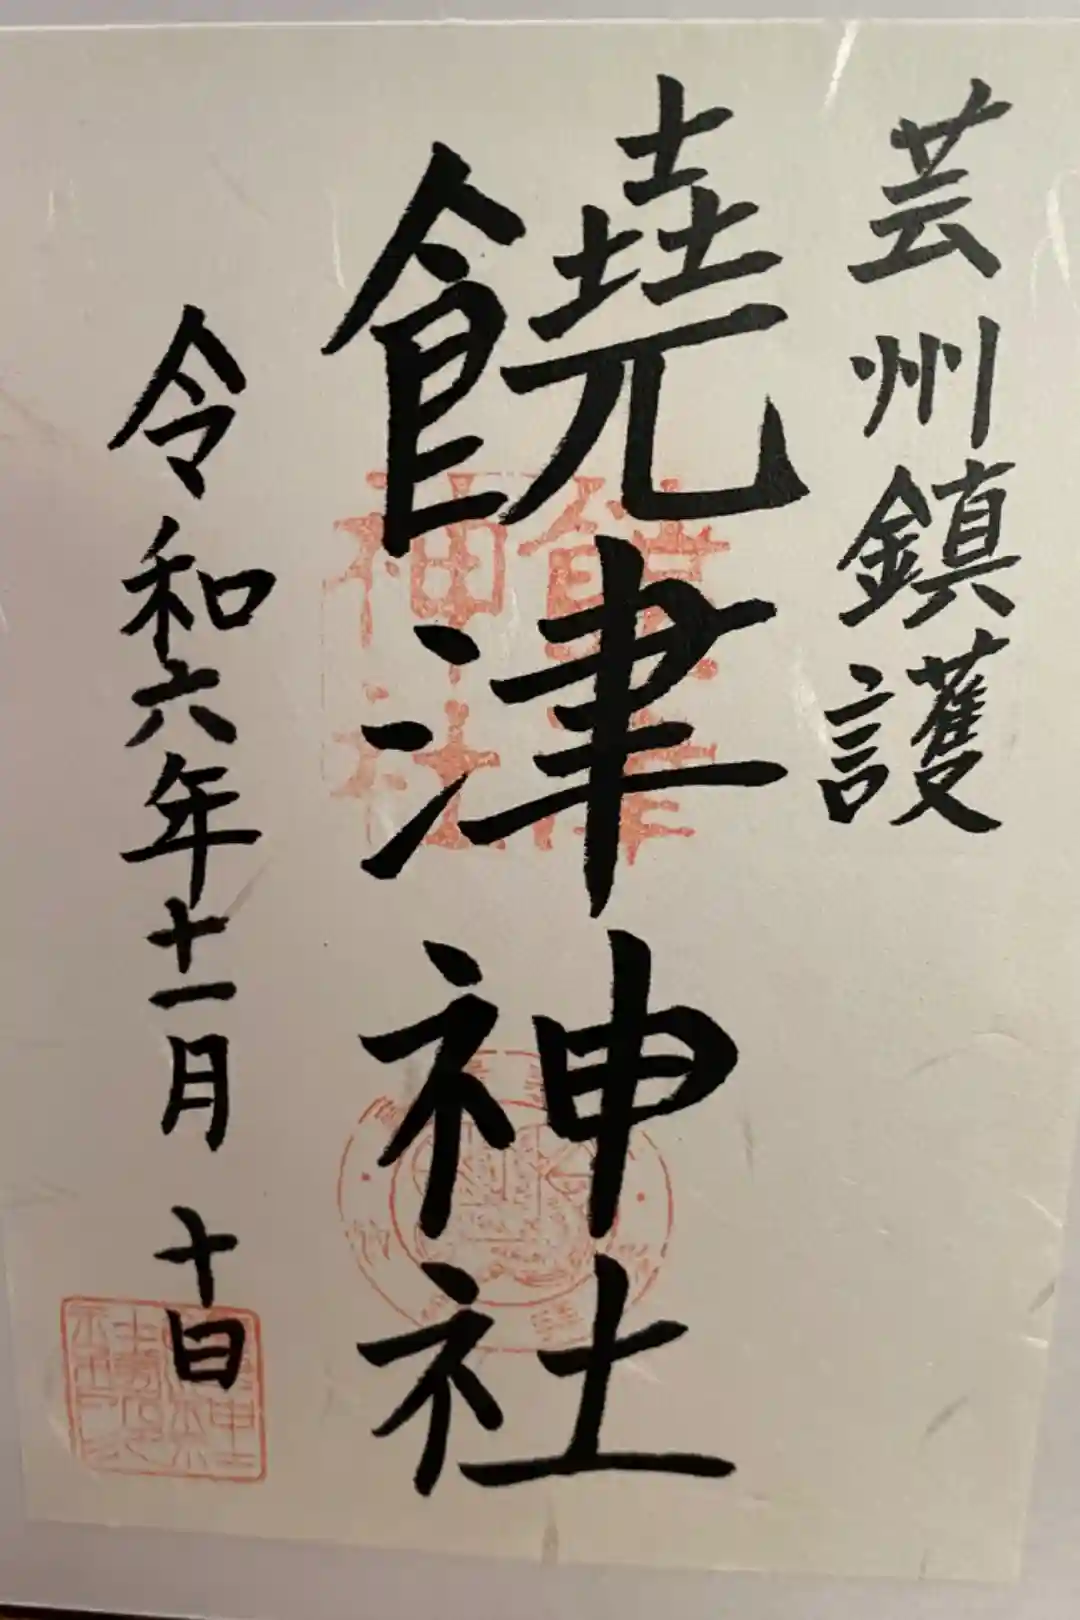 芸州鎮護
饒津神社
令和六年十一月十日
饒津
神社